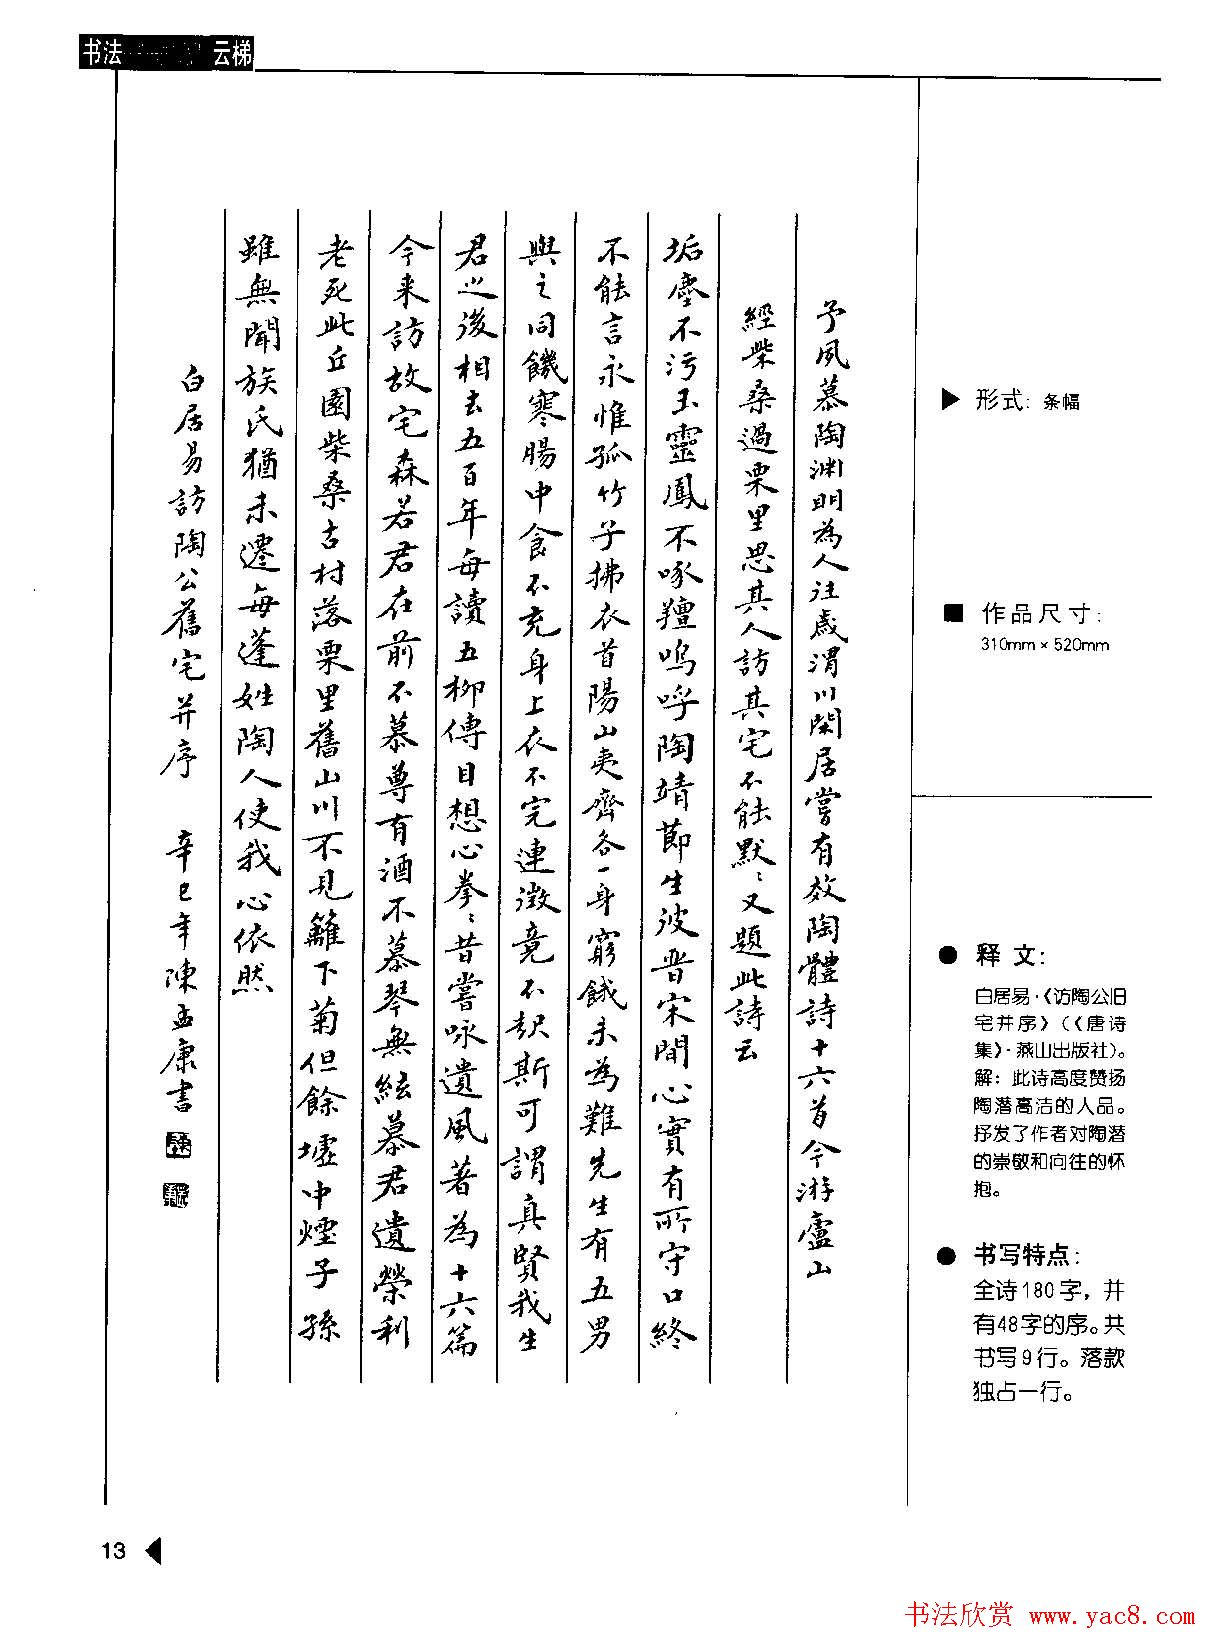 书法 云梯
予夙慕陶渊明为人往歲渭川閑居嘗有效陶體詩十六首今游廬山
經柴桑過栗里思其人訪其宅不能默〻又題此詩云
垢塵不污玉靈鳳不啄羶嗚呼陶靖節生彼晋宋間心實有所守口終
不能言永惟孤竹子拂衣首陽山夷齊各一身窮餓未为難先生有五男
與之同饑寒腸中食不充身上衣不完連徴竟不起斯可謂真賢我生
君之後相去五百年每讀五柳傳目想心拳〻昔嘗咏遺風著为十六篇
今来訪故宅森若君在前不慕尊有酒不慕琴無絃慕君遺榮利
老死此丘園柴桑古村落栗里舊山川不見籬下菊但餘墟中煙子孫
雖無聞族氏猶未遷每逢姓陶人使我心依然
白居易訪陶公舊宅并序 辛巳年陳孟康書
形式：条幅
作品尺寸：
310mm×520mm
释文：
白居易·《访陶公旧
宅并序》（《唐诗
集》·燕山出版社）。
解：此诗高度赞扬
陶潜高洁的人品。
抒发了作者对陶潜
的崇敬和向往的怀
抱。
书写特点：
全诗180字，并
有48字的序。共
书写9行。落款
独占一行。
13
书法欣赏 www.yac8.com